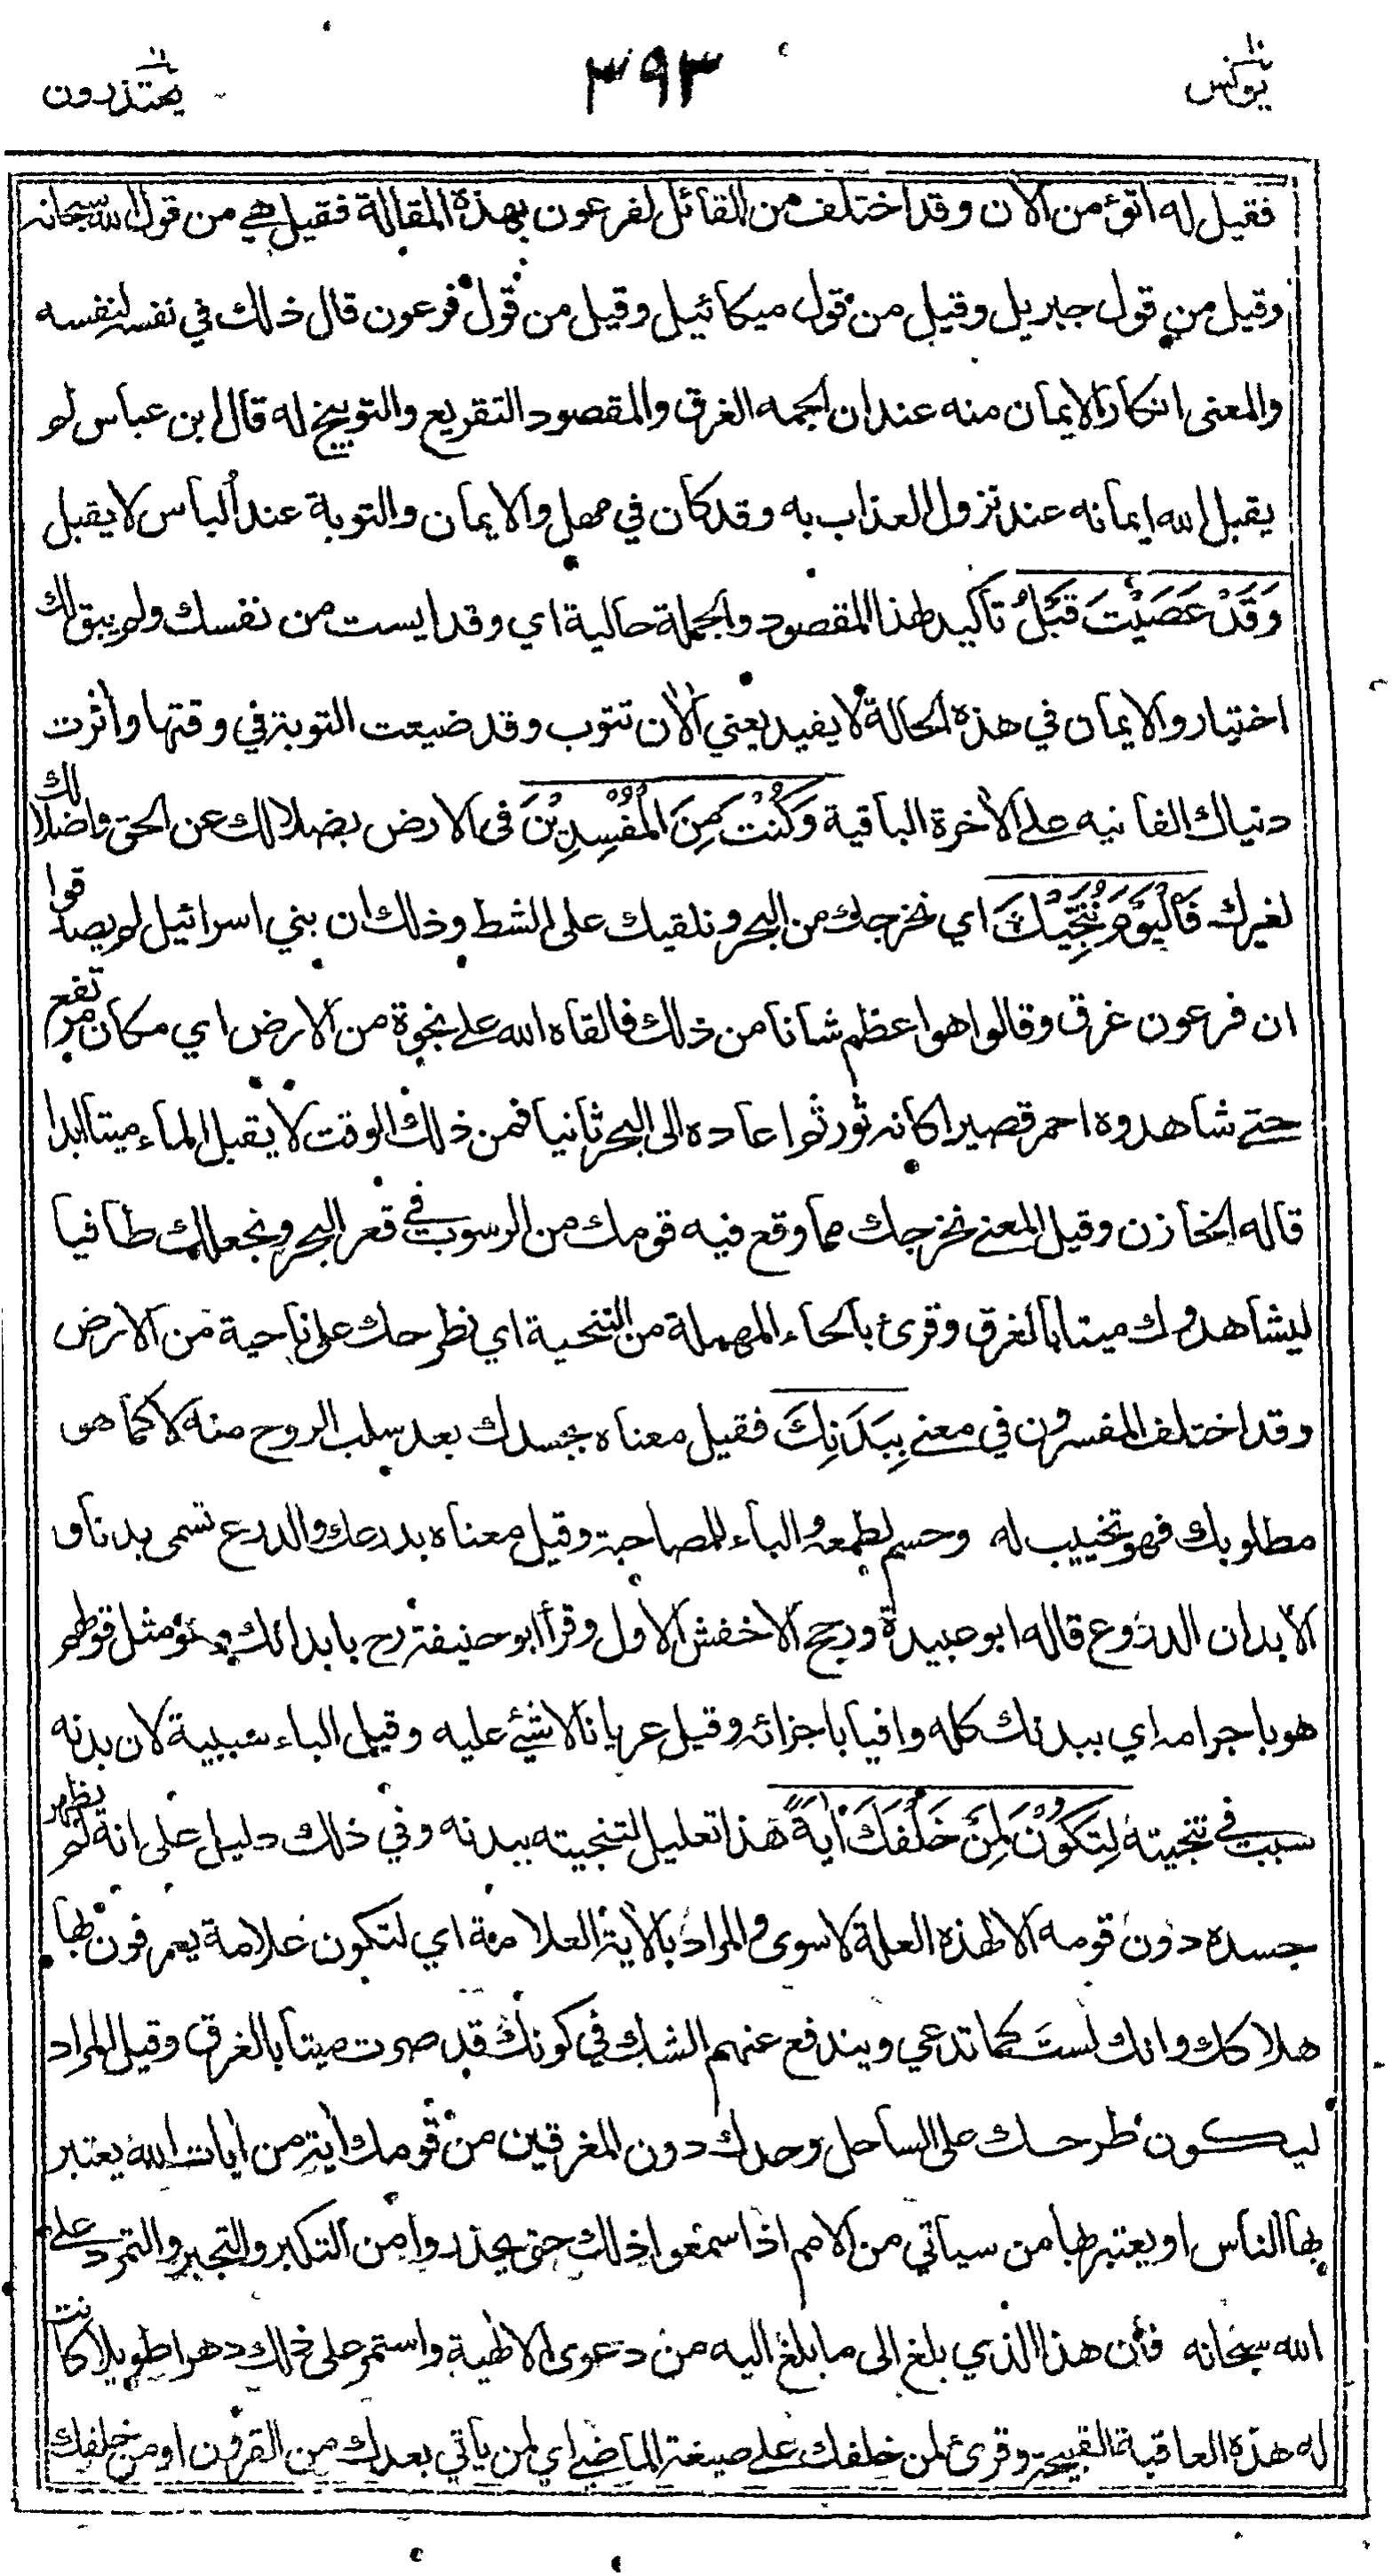 يونس ١٠
٣٩٣
يعتذرون ١١
فقيل له اتؤمن الآن وقد اختلف من القائل لفرعون بهذه المقالة فقيل هي من قول الله سبحانه
وقيل من قول جبريل وقيل من قول ميكائيل وقيل من قول فرعون قال ذلك في نفسه لنفسه
والمعنى انكار الايمان منه عند ان الجمه الغرق والمقصود التقريع والتوبيخ له قال ابن عباس لم
يقبل الله ايمانه عند نزول العذاب به وقد كان في مهل والايمان والتوبة عند البأس لا يقبل
وَقَدْ عَصَيْتَ قَبْلُ تأكيد لهذا المقصود والجملة حالية اي وقد ايست من نفسك ولم يبق لك
اختيار والايمان في هذه الحالة لا يفيد يعني الآن تتوب وقد ضيعت التوبة في وقتها واثرت
دنياك الفانيه على الأخرة الباقية وَكُنْتَ مِنَ الْمُفْسِدِيْنَ فى الارض بضلالك عن الحق واضلالك
لغيرك فَالْيَوْمَ نُنَجِّيْكَ اي نخرجك من البحر ونلقيك على الشط وذلك ان بني اسرائيل لم يصدقوا
ان فرعون غرق وقالوا هو اعظم شانا من ذلك فالقاه الله على نجوة من الارض اي مكان مرتفع
حتى شاهدوه احمر قصيرا كانه ثور ثم اعاده الى البحر ثانيا فمن ذلك الوقت لا يقبل الماء ميتا ابدا
قاله الخازن وقيل المعنى نخرجك مما وقع فيه قومك من الرسوب في قعر البحر ونجعلك طافيا
ليشاهدوك ميتا بالغرق وقرئ بالحاء المهملة من التنحية اي نطرحك على ناحية من الارض
وقد اختلف المفسرون في معنى بِبَدَنِكَ فقيل معناه بجسدك بعد سلب الروح منه لا كما هو
مطلوبك فهو تخييب له وحسم لطمعه والباء للمصاحبة وقيل معناه بدرعك والدرع تسمى بدنا و
الأبدان الدروع قاله ابو عبيدة ورجح الاخفش الاول وقرأ ابو حنيفة رح بابدانك وهو مثل قولهم
هو باجرامه اي ببدنك كله وافيا باجزائه وقيل عريانا لا شيء عليه وقيل الباء سببية لان بدنه
سبب في تنجيته لِتَكُوْنَ لِمَنْ خَلْفَكَ اٰيَةً هذا تعليل لتنجيته ببدنه وفي ذلك دليل على انه لم يظهر
جسده دون قومه الا لهذه العلة لا سوى والمراد بالآية العلامة اي لتكون علامة يعرفون بها
هلاكك وانك لست كما تدعي ويندفع عنهم الشك في كونك قد صرت ميتا بالغرق وقيل المراد
ليكون طرحك على الساحل وحدك دون المغرقين من قومك أية من ايات الله يعتبر
بها الناس او يعتبر بها من سيأتي من الامم اذا سمعوا ذلك حتى يحذروا من التكبر والتجبر والتمرد على
الله سبحانه فأن هذا الذي بلغ الى ما بلغ اليه من دعوى الالهية واستمر على ذلك دهرا طويلا كانت
له هذه العاقبة القبيحة وقرئ لمن خلفك على صيغة الماضي اي لمن يأتي بعدك من القرون او من خلفك